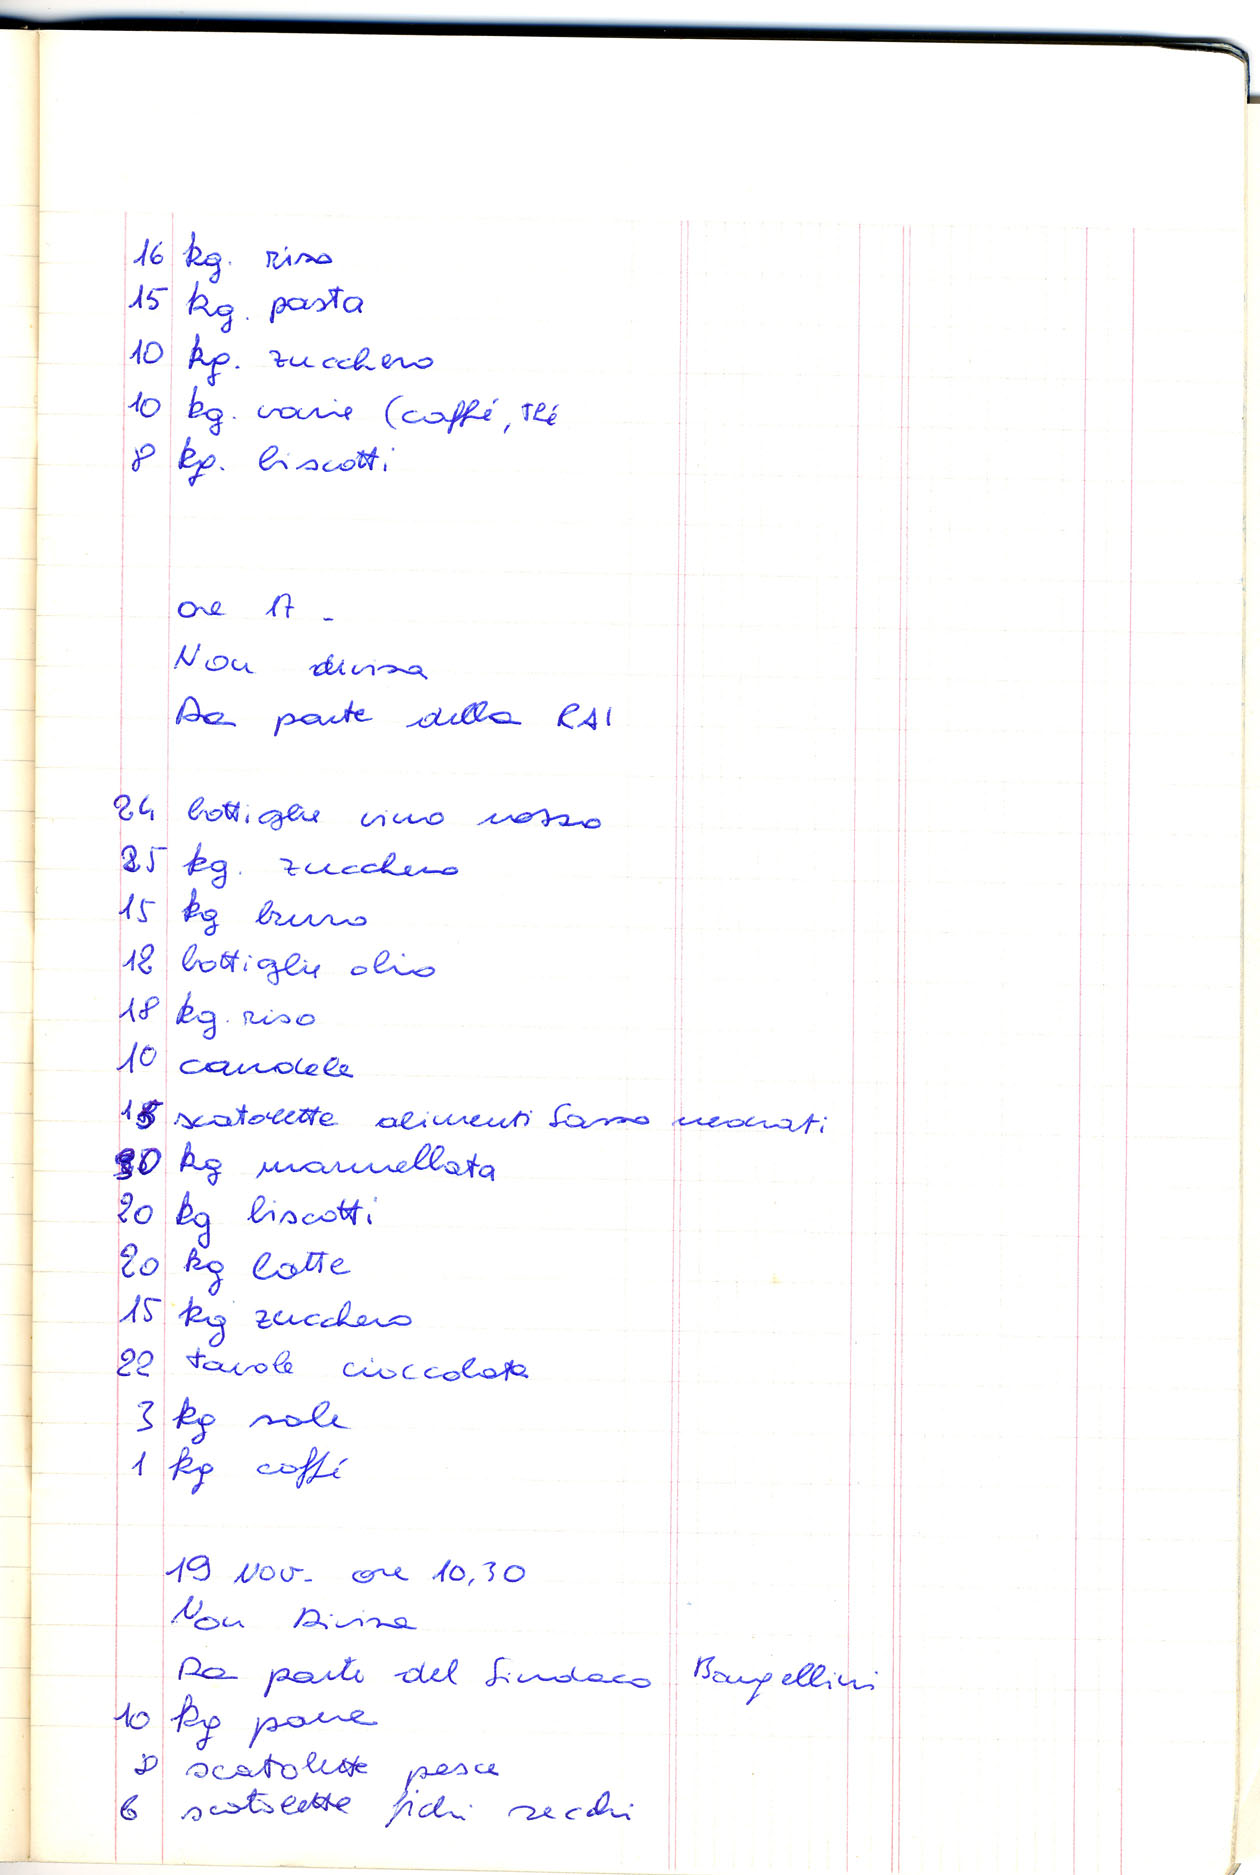 16 kg. riso
15 kg. pasta
10 kg. zucchero
10 kg. varie (caffé, thé
8 kg. biscotti
ore 17 -
Non divisa
Da parte della RAI
24 bottiglie vino rosso
25 kg. zucchero
15 kg burro
12 bottiglie olio
18 kg. riso
10 candele
15 scatolette alimenti Sasso neonati
30 kg marmellata
20 kg biscotti
20 kg latte
15 kg zucchero
22 tavole cioccolata
3 kg sale
1 kg caffé
19 Nov. ore 10,30
Non Divisa
Da parte del Sindaco Bargellini
10 kg pane
8 scatolette pesce
6 scatolette fichi secchi